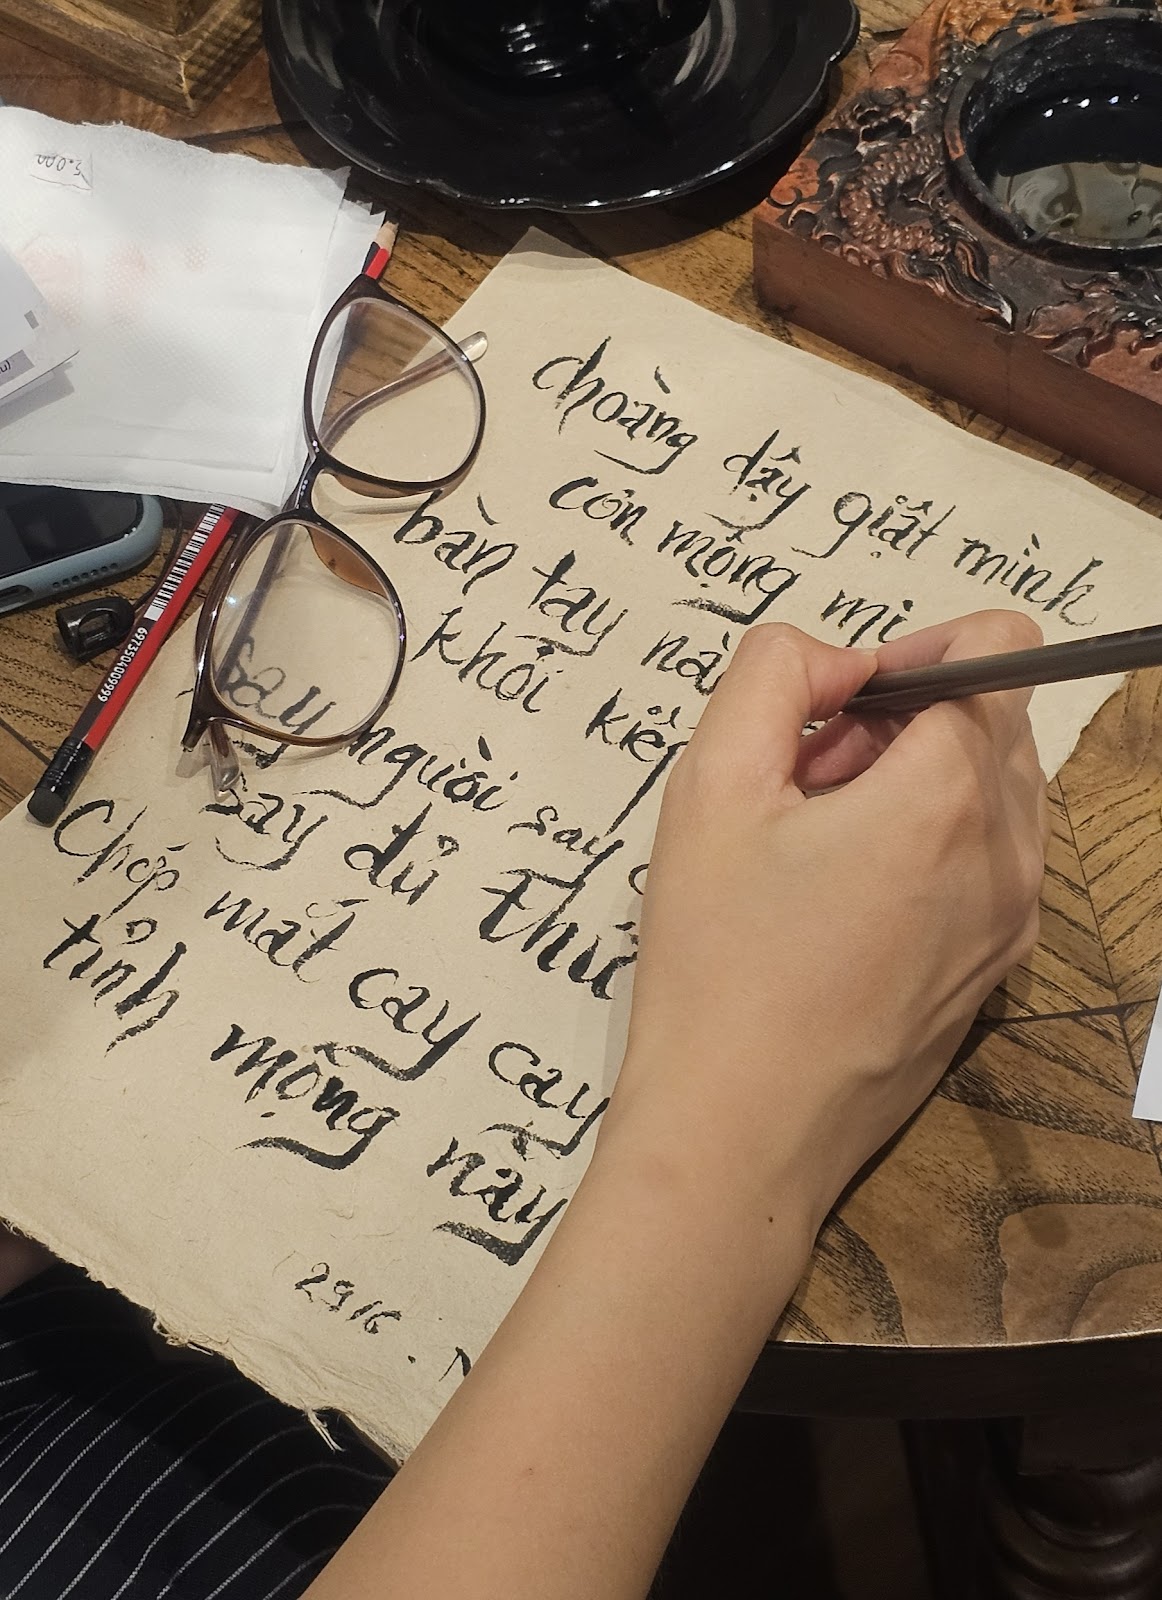 choàng dậy giật mình
cơn mộng mị
bàn tay
khỏi
say người say
say đủ thứ
Chớp mắt cay cay
tỉnh mộng này
29/6
5.000
6973504009999